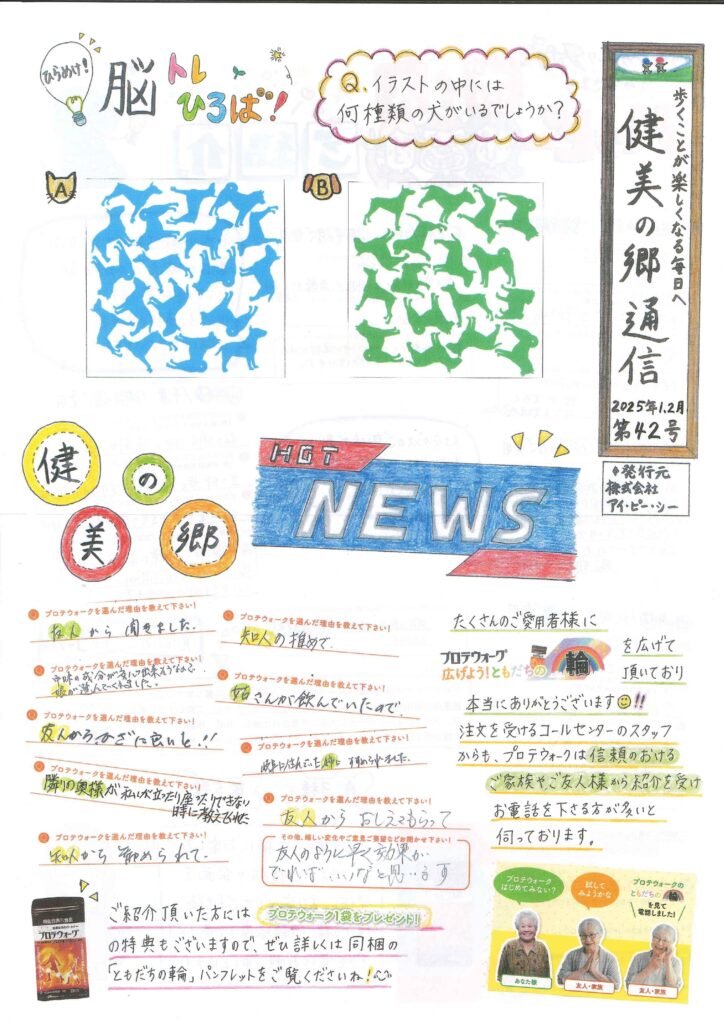 ひらめけ!
脳トレ
ひろば!
Q.イラストの中には
何種類の犬がいるでしょうか?
歩くことが楽しくなる毎日へ
健美の郷通信
2025年1.2月
第42号
発行元
株式会社
アイ・ピー・シー
A
B
健の
美郷
HOT
NEWS
プロテウォークを選んだ理由を教えて下さい!
友人から聞きました.
プロテウォークを選んだ理由を教えて下さい!
娘が選んでくれました。
プロテウォークを選んだ理由を教えて下さい!
友人から、かざに良いと.!!
プロテウォークを選んだ理由を教えて下さい!
隣りの奥様が私が立ったり座ったりできない
時に教えてくれた
プロテウォークを選んだ理由を教えて下さい!
知人から勧められて.
プロテウォークを選んだ理由を教えて下さい!
知人の推めで.
プロテウォークを選んだ理由を教えて下さい!
姉さんが飲んでいたので.
プロテウォークを選んだ理由を教えて下さい!
すすめられました.
プロテウォークを選んだ理由を教えて下さい!
友人からおしえてもらって
その他、嬉しい変化やご意見ご要望などお聞かせ下さい!
友人のように早く効果が
でれば、いいなと思います
たくさんのご愛用者様に
プロテウォーク
広げよう!ともだちの輪
を広げて
頂いており
本当にありがとうございます!!
注文を受けるコールセンターのスタッフ
からも、プロテウォークは信頼のおける
ご家族やご友人様から紹介を受け
お電話を下さる方が多いと
伺っております。
プロテウォーク
はじめてみない?
あなた様
試して
みようかな
友人・家族
プロテウォークの
ともだちの輪
を見て
電話しました!
友人・家族
プロテウォーク
ご紹介頂いた方にはプロテウォーク1袋をプレゼント!
の特典もございますので、ぜひ詳しくは同梱の
「ともだちの輪」パンフレットをご覧くださいね!